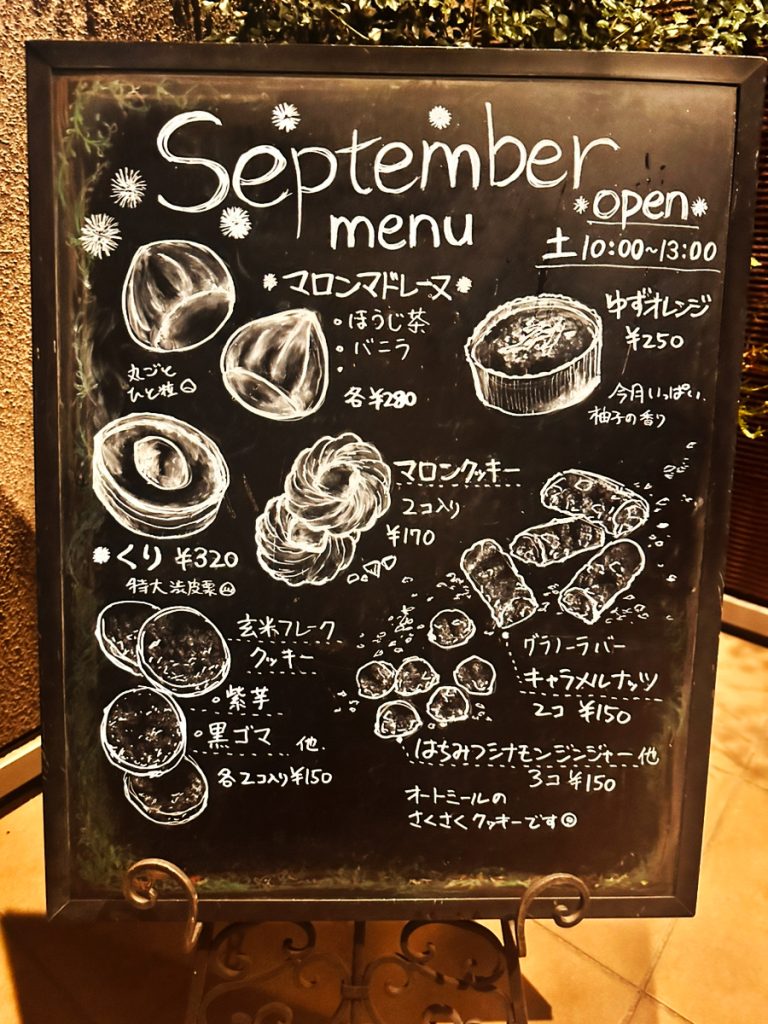 September
menu
open
土 10:00~13:00
マロンマドレーヌ
・ほうじ茶
・バニラ
・
各¥280
丸ごと
ひと粒
ゆずオレンジ
¥250
今月いっぱい、
柚子の香り
くり ¥320
特大渋皮栗
マロンクッキー
2コ入り
¥170
グラノーラバー
キャラメルナッツ
2コ ¥150
玄米フレーク
クッキー
・紫芋
・黒ゴマ 他
各2コ入り¥150
はちみつシナモンジンジャー他
3コ ¥150
オートミールの
さくさくクッキーです